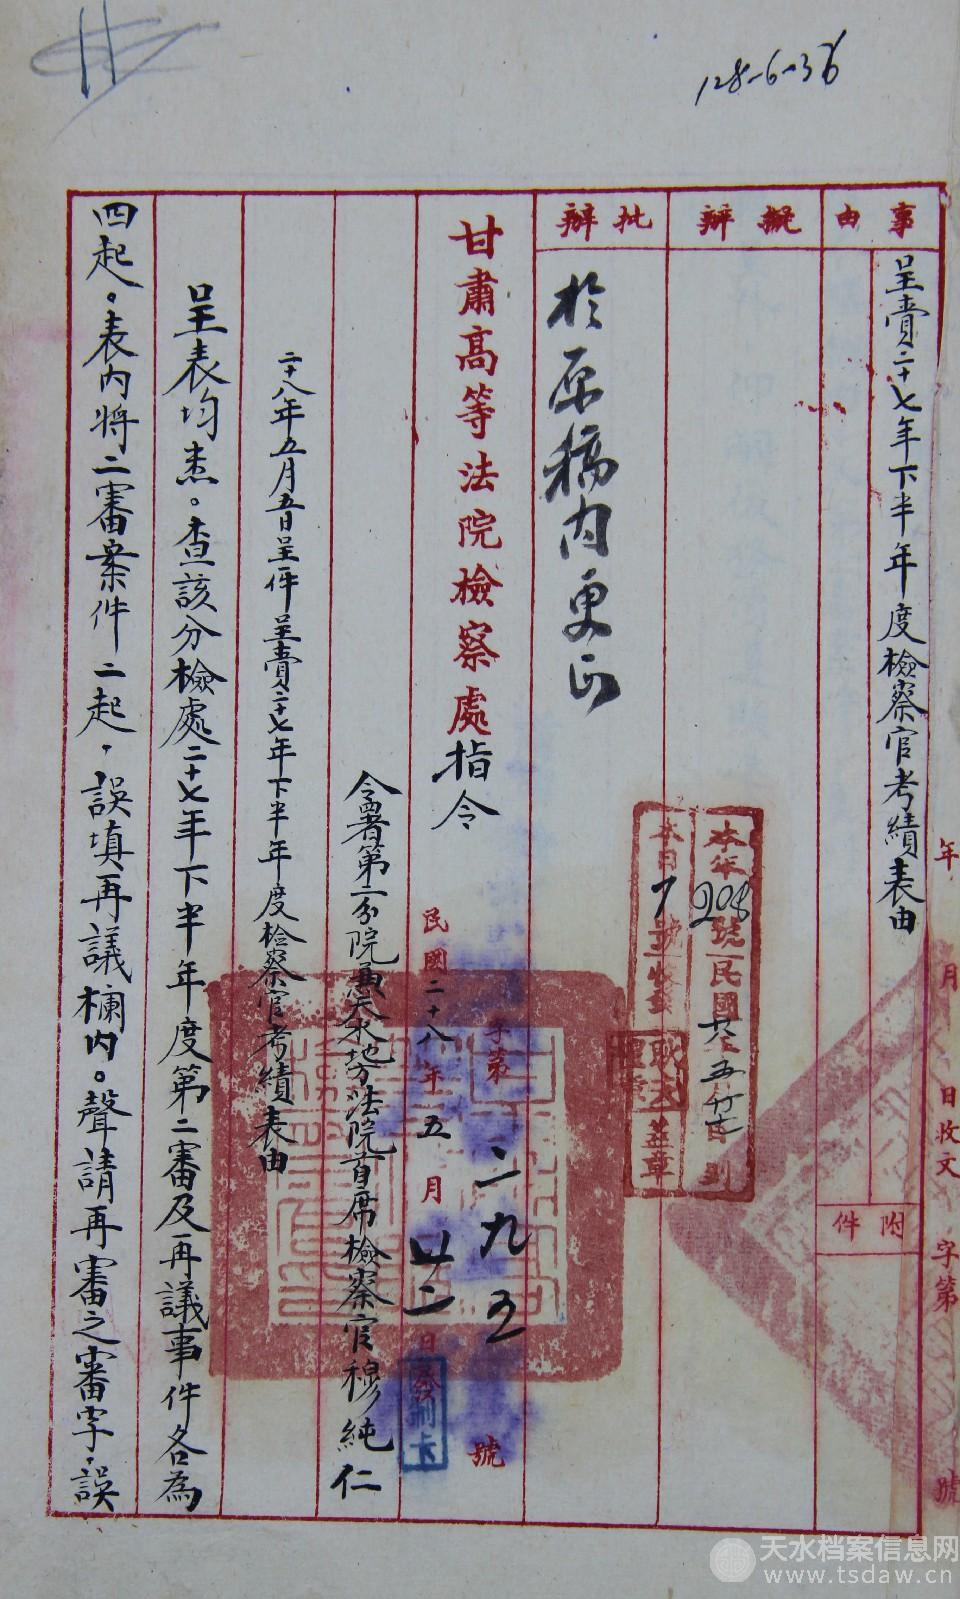 128-6-36
事由
呈賫二十七年下半年度檢察官考績表由
附件
擬辦
批辦
於原稿內更正
年 月 日收文 字第 號
本年208號民國廿八年五月廿七日到
本日7號收到
蓋章
甘肅高等法院檢察處指令
字第二九五號
民國二十八年五月廿二日發
令署第二分院兼天水地方法院首席檢察官穆純仁
二十八年五月五日呈一件呈賫二十七年下半年度檢察官考績表由
呈表均悉。查該分檢處二十七年下半年度第二審及再議事件各為
四起。表內將二審案件二起,誤填再議欄內。聲請再審之審字,誤
天水档案信息网
www.tsdaw.cn